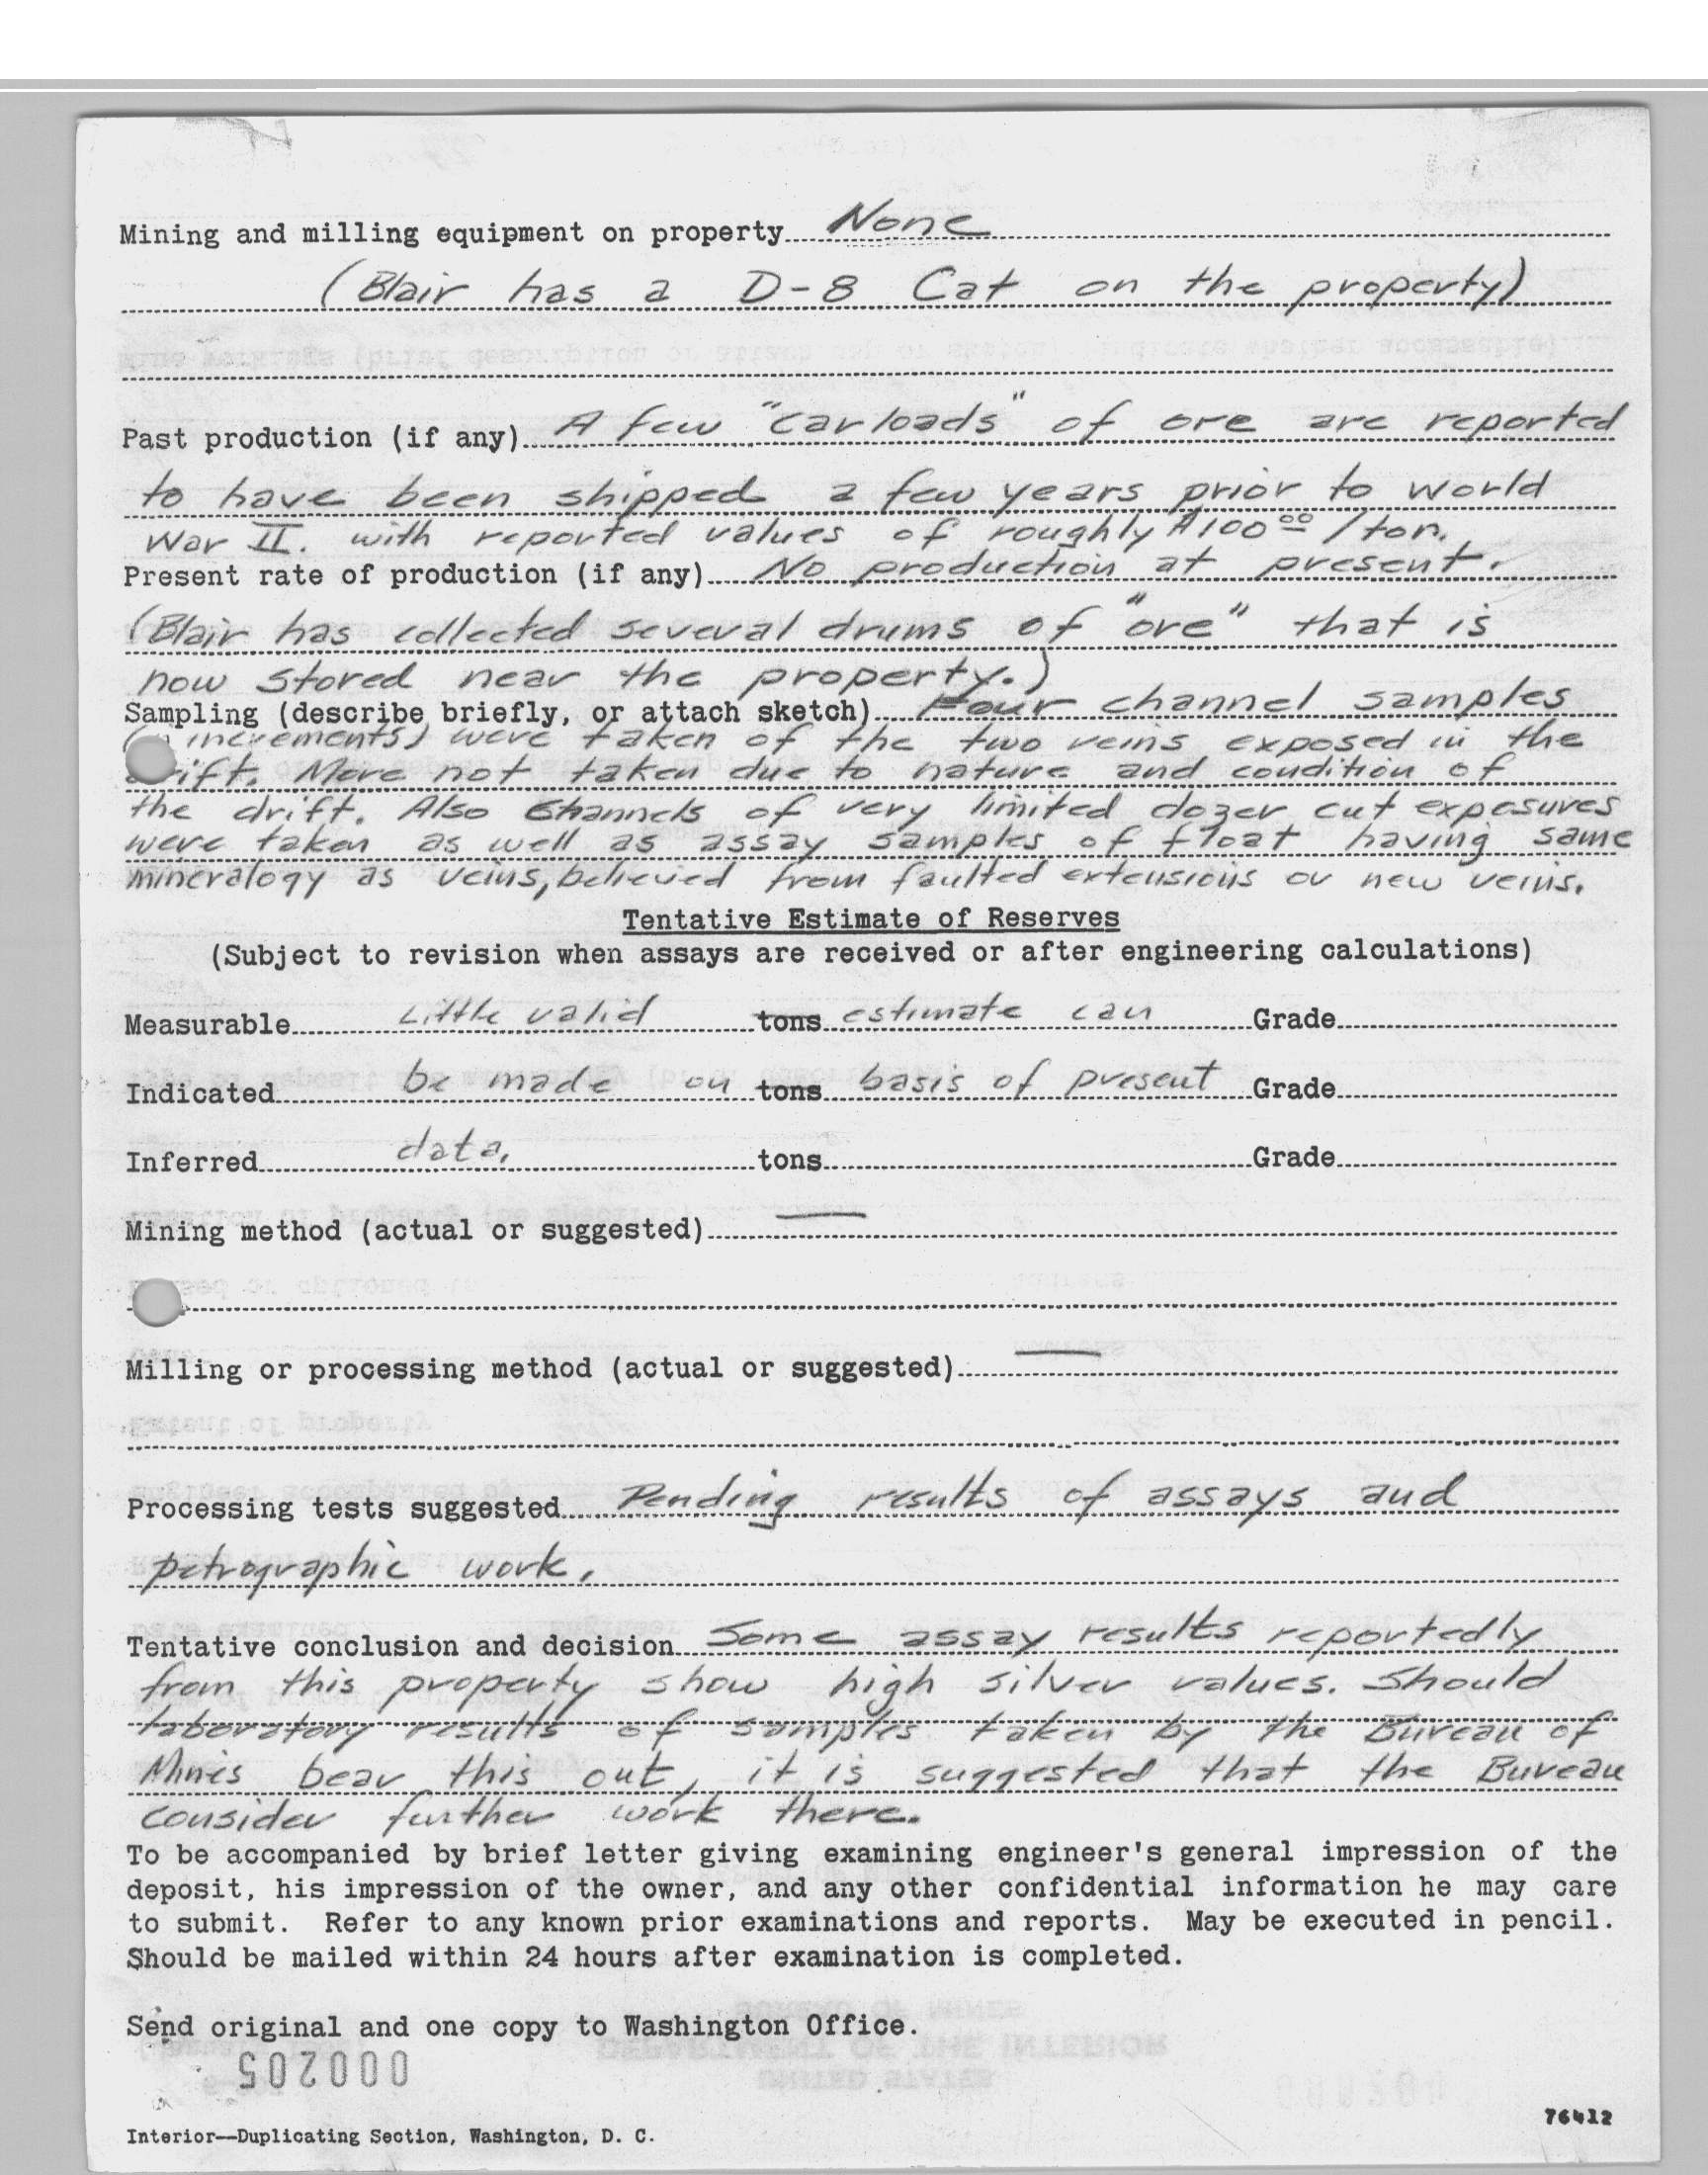 Mining and milling equipment on property None
(Blair has a D-8 Cat on the property)
Past production (if any) A few "carloads" of ore are reported
to have been shipped a few years prior to world
War II. with reported values of roughly $100 00 /ton.
Present rate of production (if any) No production at present.
(Blair has collected several drums of "ore" that is
now stored near the property.)
Sampling (describe briefly, or attach sketch) Four channel samples
increments) were taken of the two veins exposed in the
drift. More not taken due to nature and condition of
the drift. Also Channels of very limited dozer cut exposures
were taken as well as assay samples of float having same
mineralogy as veins, believed from faulted extensions or new veins.
Tentative Estimate of Reserves
(Subject to revision when assays are received or after engineering calculations)
Measurable Little valid tons estimate can Grade
Indicated be made on tons basis of present Grade
Inferred data. tons Grade
Mining method (actual or suggested) —
Milling or processing method (actual or suggested) —
Processing tests suggested Pending results of assays and
petrographic work.
Tentative conclusion and decision Some assay results reportedly
from this property show high silver values. Should
laboratory results of samples taken by the Bureau of
Mines bear this out, it is suggested that the Bureau
consider further work there.
To be accompanied by brief letter giving examining engineer's general impression of the
deposit, his impression of the owner, and any other confidential information he may care
to submit. Refer to any known prior examinations and reports. May be executed in pencil.
Should be mailed within 24 hours after examination is completed.
Send original and one copy to Washington Office.
000205
Interior--Duplicating Section, Washington, D. C.
76412